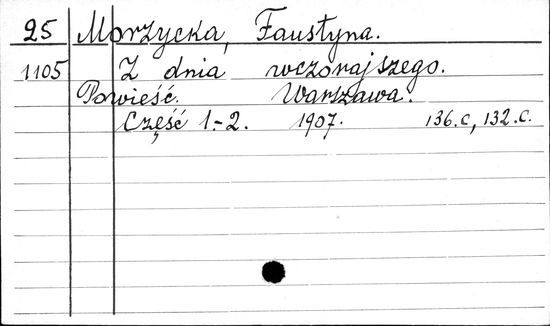 25 Morzycka, Faustyna.
1105 Z dnia wczorajszego.
Powieść. Warszawa.
Część 1.-2. 1907. 136.c, 132.c.